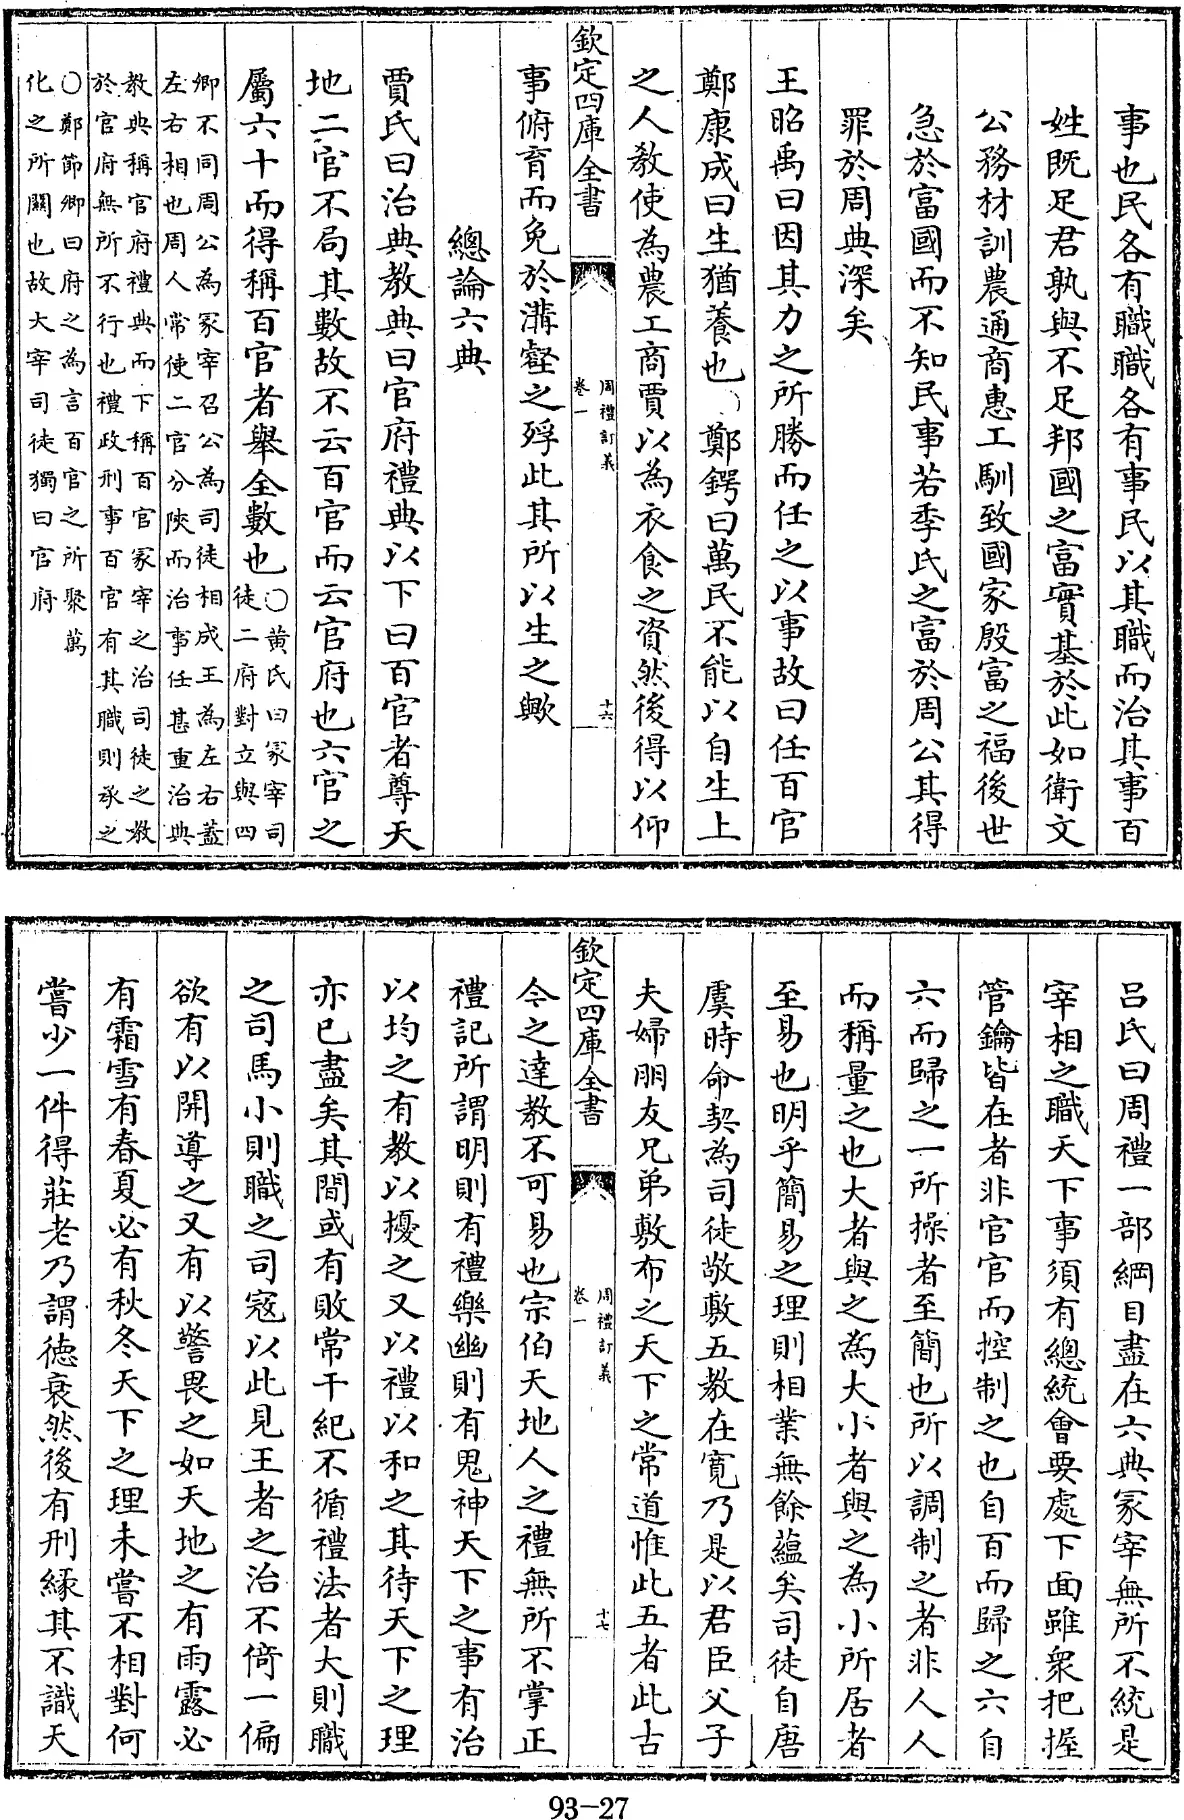 事也民各有職職各有事民以其職而治其事百
姓既足君孰與不足邦國之富實基於此如衛文
公務材訓農通商惠工馴致國家殷富之福後世
急於富國而不知民事若季氏之富於周公其得
罪於周典深矣
王昭禹曰因其力之所勝而任之以事故曰任百官
鄭康成曰生猶養也〇鄭鍔曰萬民不能以自生上
之人教使為農工商賈以為衣食之資然後得以仰
欽定四庫全書
周禮訂義
卷一
十六
事俯育而免於溝壑之殍此其所以生之歟
總論六典
賈氏曰治典教典曰官府禮典以下曰百官者尊天
地二官不局其數故不云百官而云官府也六官之
屬六十而得稱百官者舉全數也〇黄氏曰冢宰司
徒二府對立與四
卿不同周公為冢宰召公為司徒相成王為左右蓋
左右相也周人常使二官分陜而治事任甚重治典
教典稱官府禮典而下稱百官冢宰之治司徒之教
於官府無所不行也禮政刑事百官有其職則承之
〇鄭節卿曰府之為言百官之所聚萬
化之所關也故大宰司徒獨曰官府
吕氏曰周禮一部綱目盡在六典冢宰無所不統是
宰相之職天下事須有總統會要處下面雖衆把握
管鑰皆在者非官官而控制之也自百而歸之六自
六而歸之一所操者至簡也所以調制之者非人人
而稱量之也大者與之為大小者與之為小所居者
至易也明乎簡易之理則相業無餘蘊矣司徒自唐
虞時命契為司徒敬敷五教在寛乃是以君臣父子
夫婦朋友兄弟敷布之天下之常道惟此五者此古
欽定四庫全書
周禮訂義
卷一
十七
今之達教不可易也宗伯天地人之禮無所不掌正
禮記所謂明則有禮樂幽則有鬼神天下之事有治
以均之有教以擾之又以禮以和之其待天下之理
亦已盡矣其間或有敗常干紀不循禮法者大則職
之司馬小則職之司寇以此見王者之治不倚一偏
欲有以開導之又有以警畏之如天地之有雨露必
有霜雪有春夏必有秋冬天下之理未嘗不相對何
嘗少一件得莊老乃謂徳衰然後有刑緣其不識天
93-27